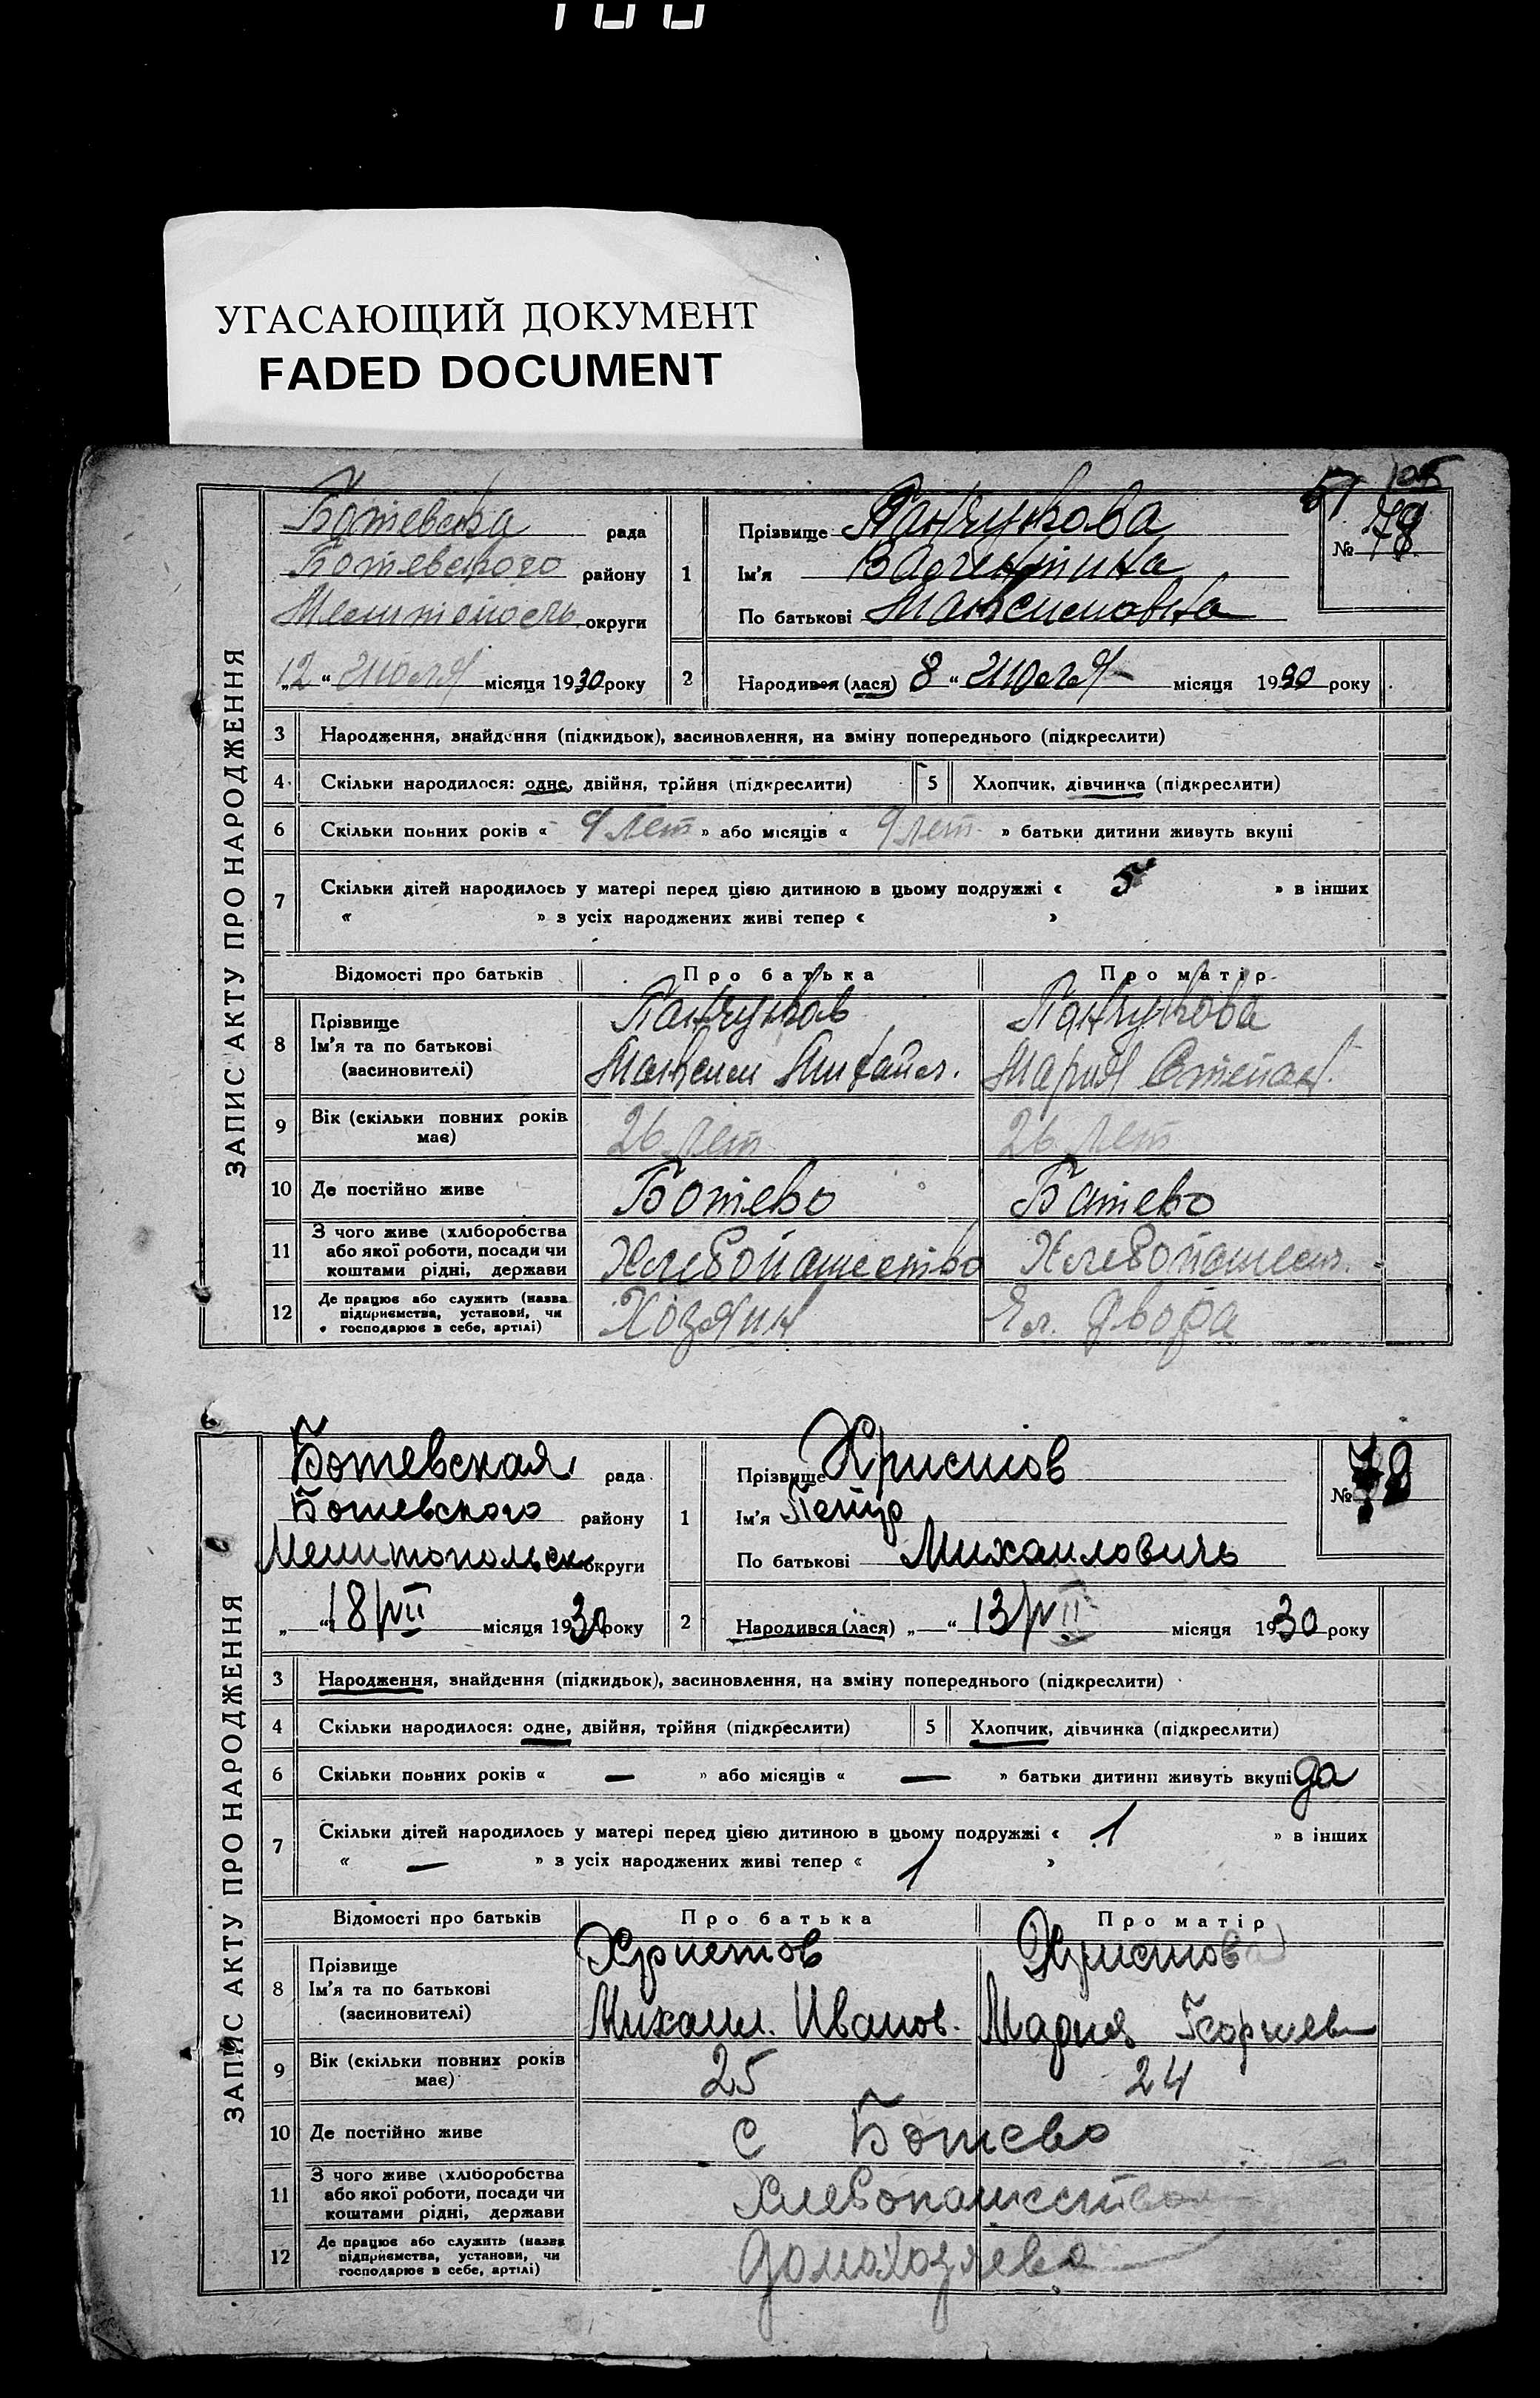 УГАСАЮЩИЙ ДОКУМЕНТ
FADED DOCUMENT
ЗАПИС АКТУ ПРО НАРОДЖЕННЯ
Ботевска рада
Ботевского району
Мелитополь округи
„12“ июля місяця 1930 року
1
Прізвище Панчукова
Ім'я Валентина
По батькові Максимовна
№ 78
2 Народився (лася) 8 “ июля місяця 1930 року
3 Народження, знайдення (підкидьок), засиновлення, на зміну попереднього (підкреслити)
4 Скільки народилося: одне, двійня, трійня (підкреслити) 5 Хлопчик, дівчинка (підкреслити)
6 Скільки повних років « 9 лет » або місяців « 9 лет » батьки дитини живуть вкупі
7 Скільки дітей народилось у матері перед цією дитиною в цьому подружжі « 5 » в інших
« » з усіх народжених живі тепер « »
Відомості про батьків Про батька Про матір
8 Прізвище Ім'я та по батькові (засиновителі)
Панчуков Панчукова
Максим Михайл. Мария Степан.
9 Вік (скільки повних років має) 26 лет 26 лет
10 Де постійно живе Ботево Ботево
11 З чого живе (хліборобства або якої роботи, посади чи коштами рідні, держави Хлебопашество Хлебопашест.
12 Де працює або служить (назва підприємства, установи, чи господарює в себе, артілі) Хозяин Чл. двора
ЗАПИС АКТУ ПРО НАРОДЖЕННЯ
Ботевская рада
Ботевского району
Мелитопольск округи
„ “ 18/VII місяця 1930 року
1
Прізвище Христов
Ім'я Петр
По батькові Михаиловичь
№
2 Народився (лася) „ “ 13/VII місяця 1930 року
3 Народження, знайдення (підкидьок), засиновлення, на зміну попереднього (підкреслити)
4 Скільки народилося: одне, двійня, трійня (підкреслити) 5 Хлопчик, дівчинка (підкреслити)
6 Скільки повних років « — » або місяців « — » батьки дитини живуть вкупі да
7 Скільки дітей народилось у матері перед цією дитиною в цьому подружжі « 1 » в інших
« — » з усіх народжених живі тепер « 1 »
Відомості про батьків Про батька Про матір
8 Прізвище Ім'я та по батькові (засиновителі)
Христов Христова
Михаил. Иванов. Мария Георгиев
9 Вік (скільки повних років має) 25 24
10 Де постійно живе с Ботево
11 З чого живе (хліборобства або якої роботи, посади чи коштами рідні, держави Хлебопашество
12 Де працює або служить (назва підприємства, установи, чи господарює в себе, артілі) домохозяева